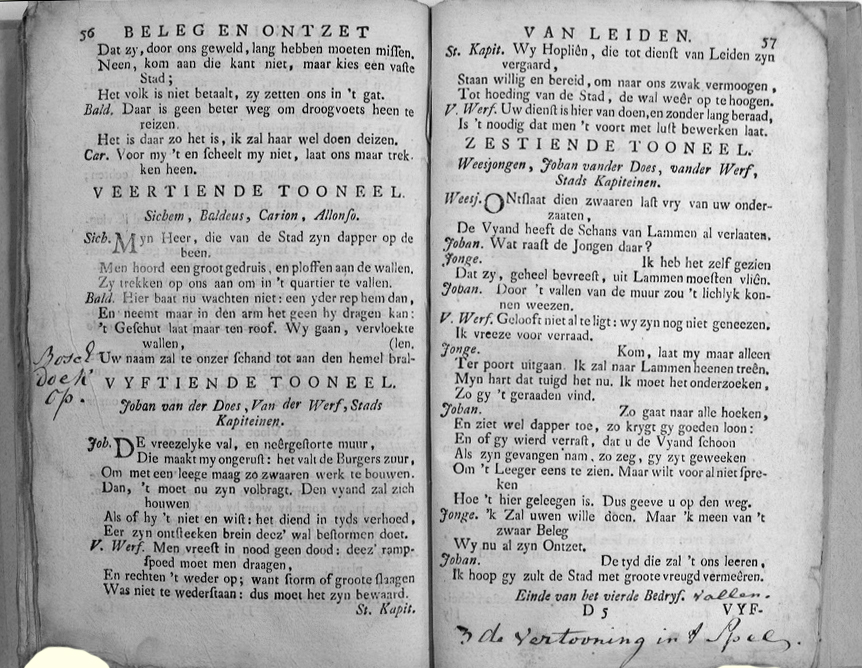 56 BELEG EN ONTZET
Dat zy, door ons geweld, lang hebben moeten missen.
Neen, kom aan die kant niet, maar kies een vaste
Stad;
Het volk is niet betaalt, zy zetten ons in 't gat.
Bald. Daar is geen beter weg om droogvoets heen te
reizen.
Het is daar zo het is, ik zal haar wel doen deizen.
Car. Voor my 't en scheelt my niet, laat ons maar trek-
ken heen.
VEERTIENDE TOONEEL.
Sichem, Baldeus, Carion, Allonso.
Sich. Myn Heer, die van de Stad zyn dapper op de
been.
Men hoord een groot gedruis, en ploffen aan de wallen.
Zy trekken op ons aan om in 't quartier te vallen.
Bald. Hier baat nu wachten niet: een yder rep hem dan,
En neemt maar in den arm het geen hy dragen kan:
't Geschut laat maar ten roof. Wy gaan, vervloekte
wallen, (len.
Uw naam zal te onzer schand tot aan den hemel bral-
Bosch
doek
op.
VYFTIENDE TOONEEL.
Joban van der Does, Van der Werf, Stads
Kapiteinen.
Joh. DE vreezelyke val, en neêrgestorte muur,
Die maakt my ongerust: het valt de Burgers zuur,
Om met een leege maag zo zwaaren werk te bouwen.
Dan, 't moet nu zyn volbragt. Den vyand zal zich
houwen
Als of hy 't niet en wist: het diend in tyds verhoed,
Eer zyn ontsteeken brein deez' wal bestormen doet.
V. Werf. Men vreest in nood geen dood: deez' ramp-
spoed moet men draagen,
En rechten 't weder op; want storm of groote slaagen
Was niet te wederstaan: dus moet het zyn bewaard.
St. Kapit.
VAN LEIDEN. 57
St. Kapit. Wy Hopliên, die tot dienst van Leiden zyn
vergaard,
Staan willig en bereid, om naar ons zwak vermoogen,
Tot hoeding van de Stad, de wal weêr op te hoogen.
V. Werf. Uw dienst is hier van doen, en zonder lang beraad,
Is 't noodig dat men 't voort met lust bewerken laat.
ZESTIENDE TOONEEL.
Weesjongen, Joban vander Does, vander Werf,
Stads Kapiteinen.
Weesj. ONtslaat dien zwaaren last vry van uw onder-
zaaten,
De Vyand heeft de Schans van Lammen al verlaaten.
Joban. Wat raast de Jongen daar?
Jonge. Ik heb het zelf gezien
Dat zy, geheel bevreest, uit Lammen moesten vliên.
Joban. Door 't vallen van de muur zou 't lichlyk kon-
nen weezen.
V. Werf. Gelooft niet al te ligt: wy zyn nog niet geneezen.
Ik vreeze voor verraad.
Jonge. Kom, laat my maar alleen
Ter poort uitgaan. Ik zal naar Lammen heenen treên.
Myn hart dat tuigd het nu. Ik moet het onderzoeken,
Zo gy 't geraaden vind.
Joban. Zo gaat naar alle hoeken,
En ziet wel dapper toe, zo krygt gy goeden loon:
En of gy wierd verrast, dat u de Vyand schoon
Als zyn gevangen nam, zo zeg, gy zyt geweeken
Om 't Leeger eens te zien. Maar wilt vooral niet spre-
ken
Hoe 't hier geleegen is. Dus geeve u op den weg.
Jonge. 'k Zal uwen wille doen. Maar 'k meen van 't
zwaar Beleg
Wy nu al zyn Ontzet.
Joban. De tyd die zal 't ons leeren,
Ik hoop gy zult de Stad met groote vreugd vermeêren.
Einde van het vierde Bedryf. vallen.
D 5 VYF-
3 de vertooning in 't Spel.